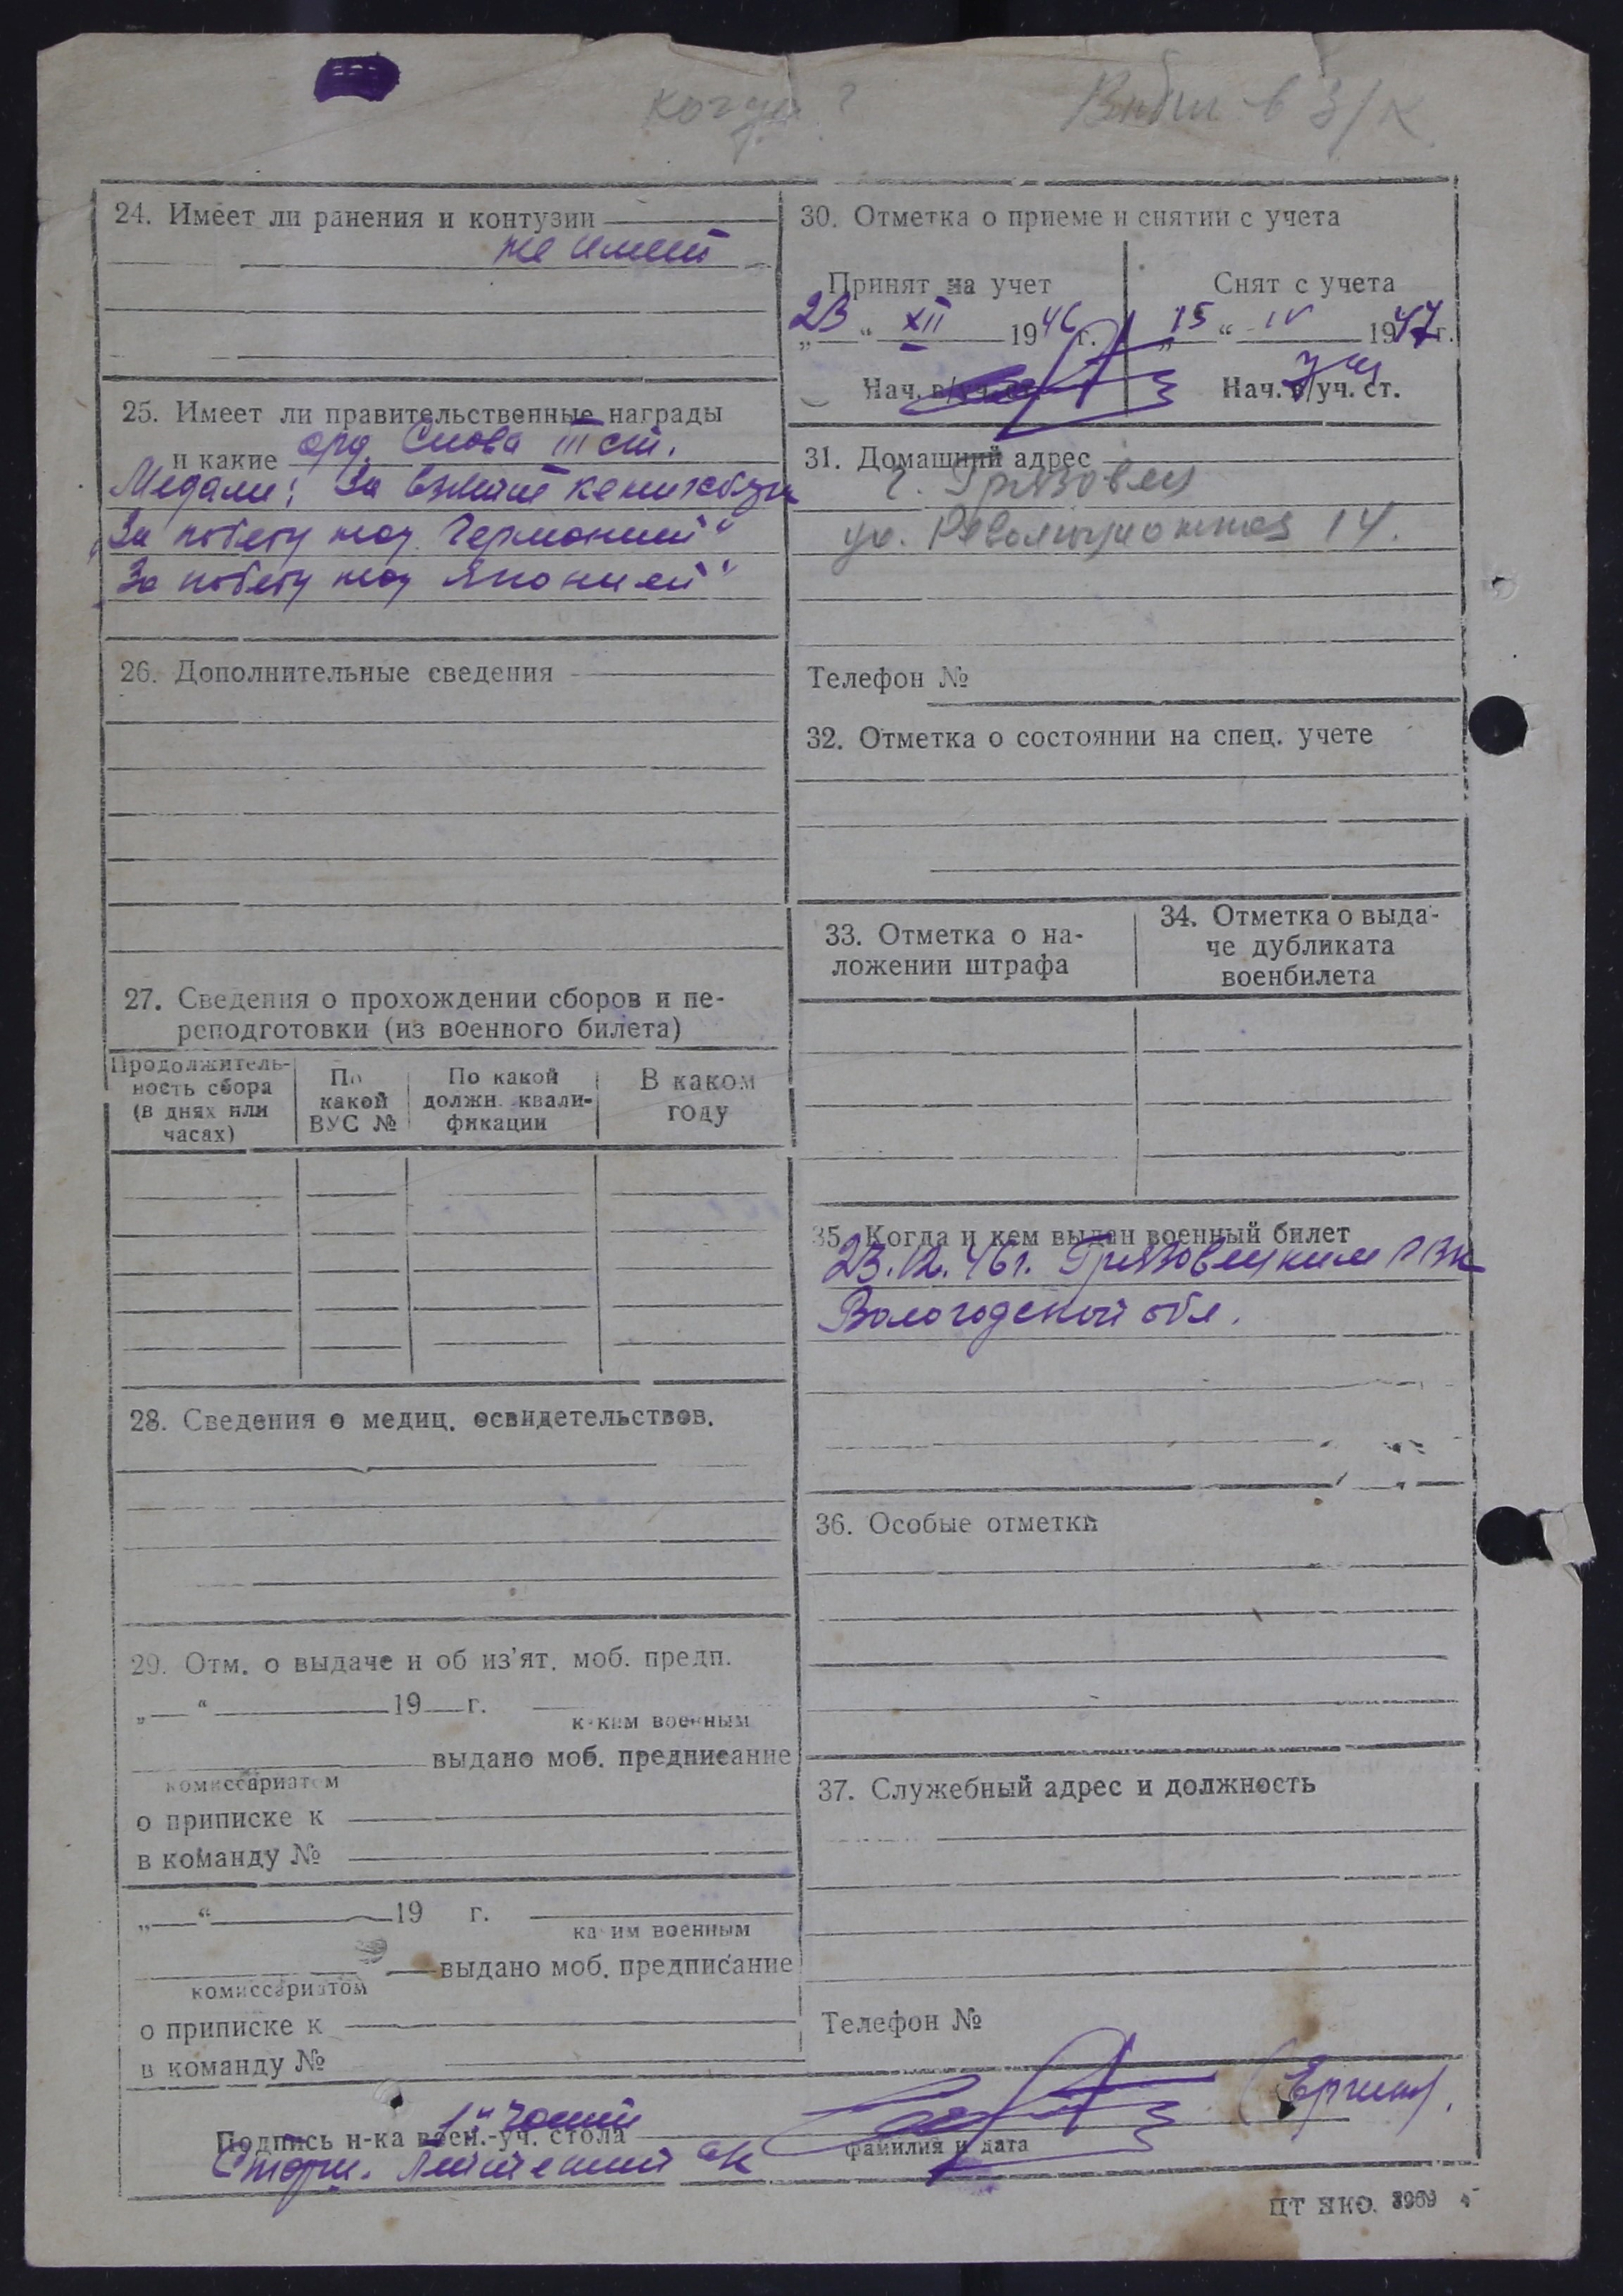 когда?
Выбыл в З/К
24. Имеет ли ранения и контузии
не имеет
25. Имеет ли правительственные награды
и какие орд. Слова III ст.
Медали: За взятие кенигсберг
„За победу над Германией“
„За победу над Японией“
26. Дополнительные сведения
27. Сведения о прохождении сборов и пе-
реподготовки (из военного билета)
Продолжитель-
ность сбора
(в днях или
часах)
По
какой
ВУС №
По какой
должн. квали-
фикации
В каком
году
28. Сведения о медиц. освидетельствов.
29. Отм. о выдаче и об из’ят. моб. предп.
„ “ 19 г.
каким военным
выдано моб. предписание
комиссариатом
о приписке к
в команду №
„ “ 19 г.
каким военным
выдано моб. предписание
комиссариатом
о приписке к
в команду №
30. Отметка о приеме и снятии с учета
Принят на учет
„23“ XII 1946 г.
Нач. в/уч. ст.
Снят с учета
„15“ IV 1947 г.
Нач. в/уч. ст.
31. Домашний адрес
г. Грязовец
ул. Революционная 14.
Телефон №
32. Отметка о состоянии на спец. учете
33. Отметка о на-
ложении штрафа
34. Отметка о выда-
че дубликата
военбилета
35. Когда и кем выдан военный билет
23.12.46г. Грязовецким РВК
Вологодской обл.
36. Особые отметки
37. Служебный адрес и должность
Телефон №
1й части
Подпись н-ка воен.-уч. стола
Старш. Лейтенант
фамилия и дата
ЦТ НКО. 3969